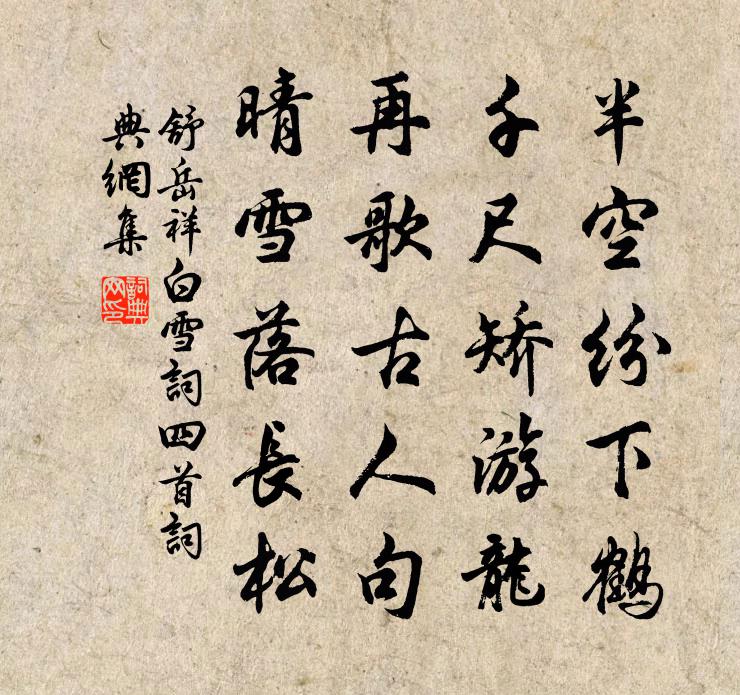 半空纷下鶴
千尺矫游龍
再歌古人句
晴雪落長松
舒岳祥白雪詞四首詞
典網集
詞典
网印